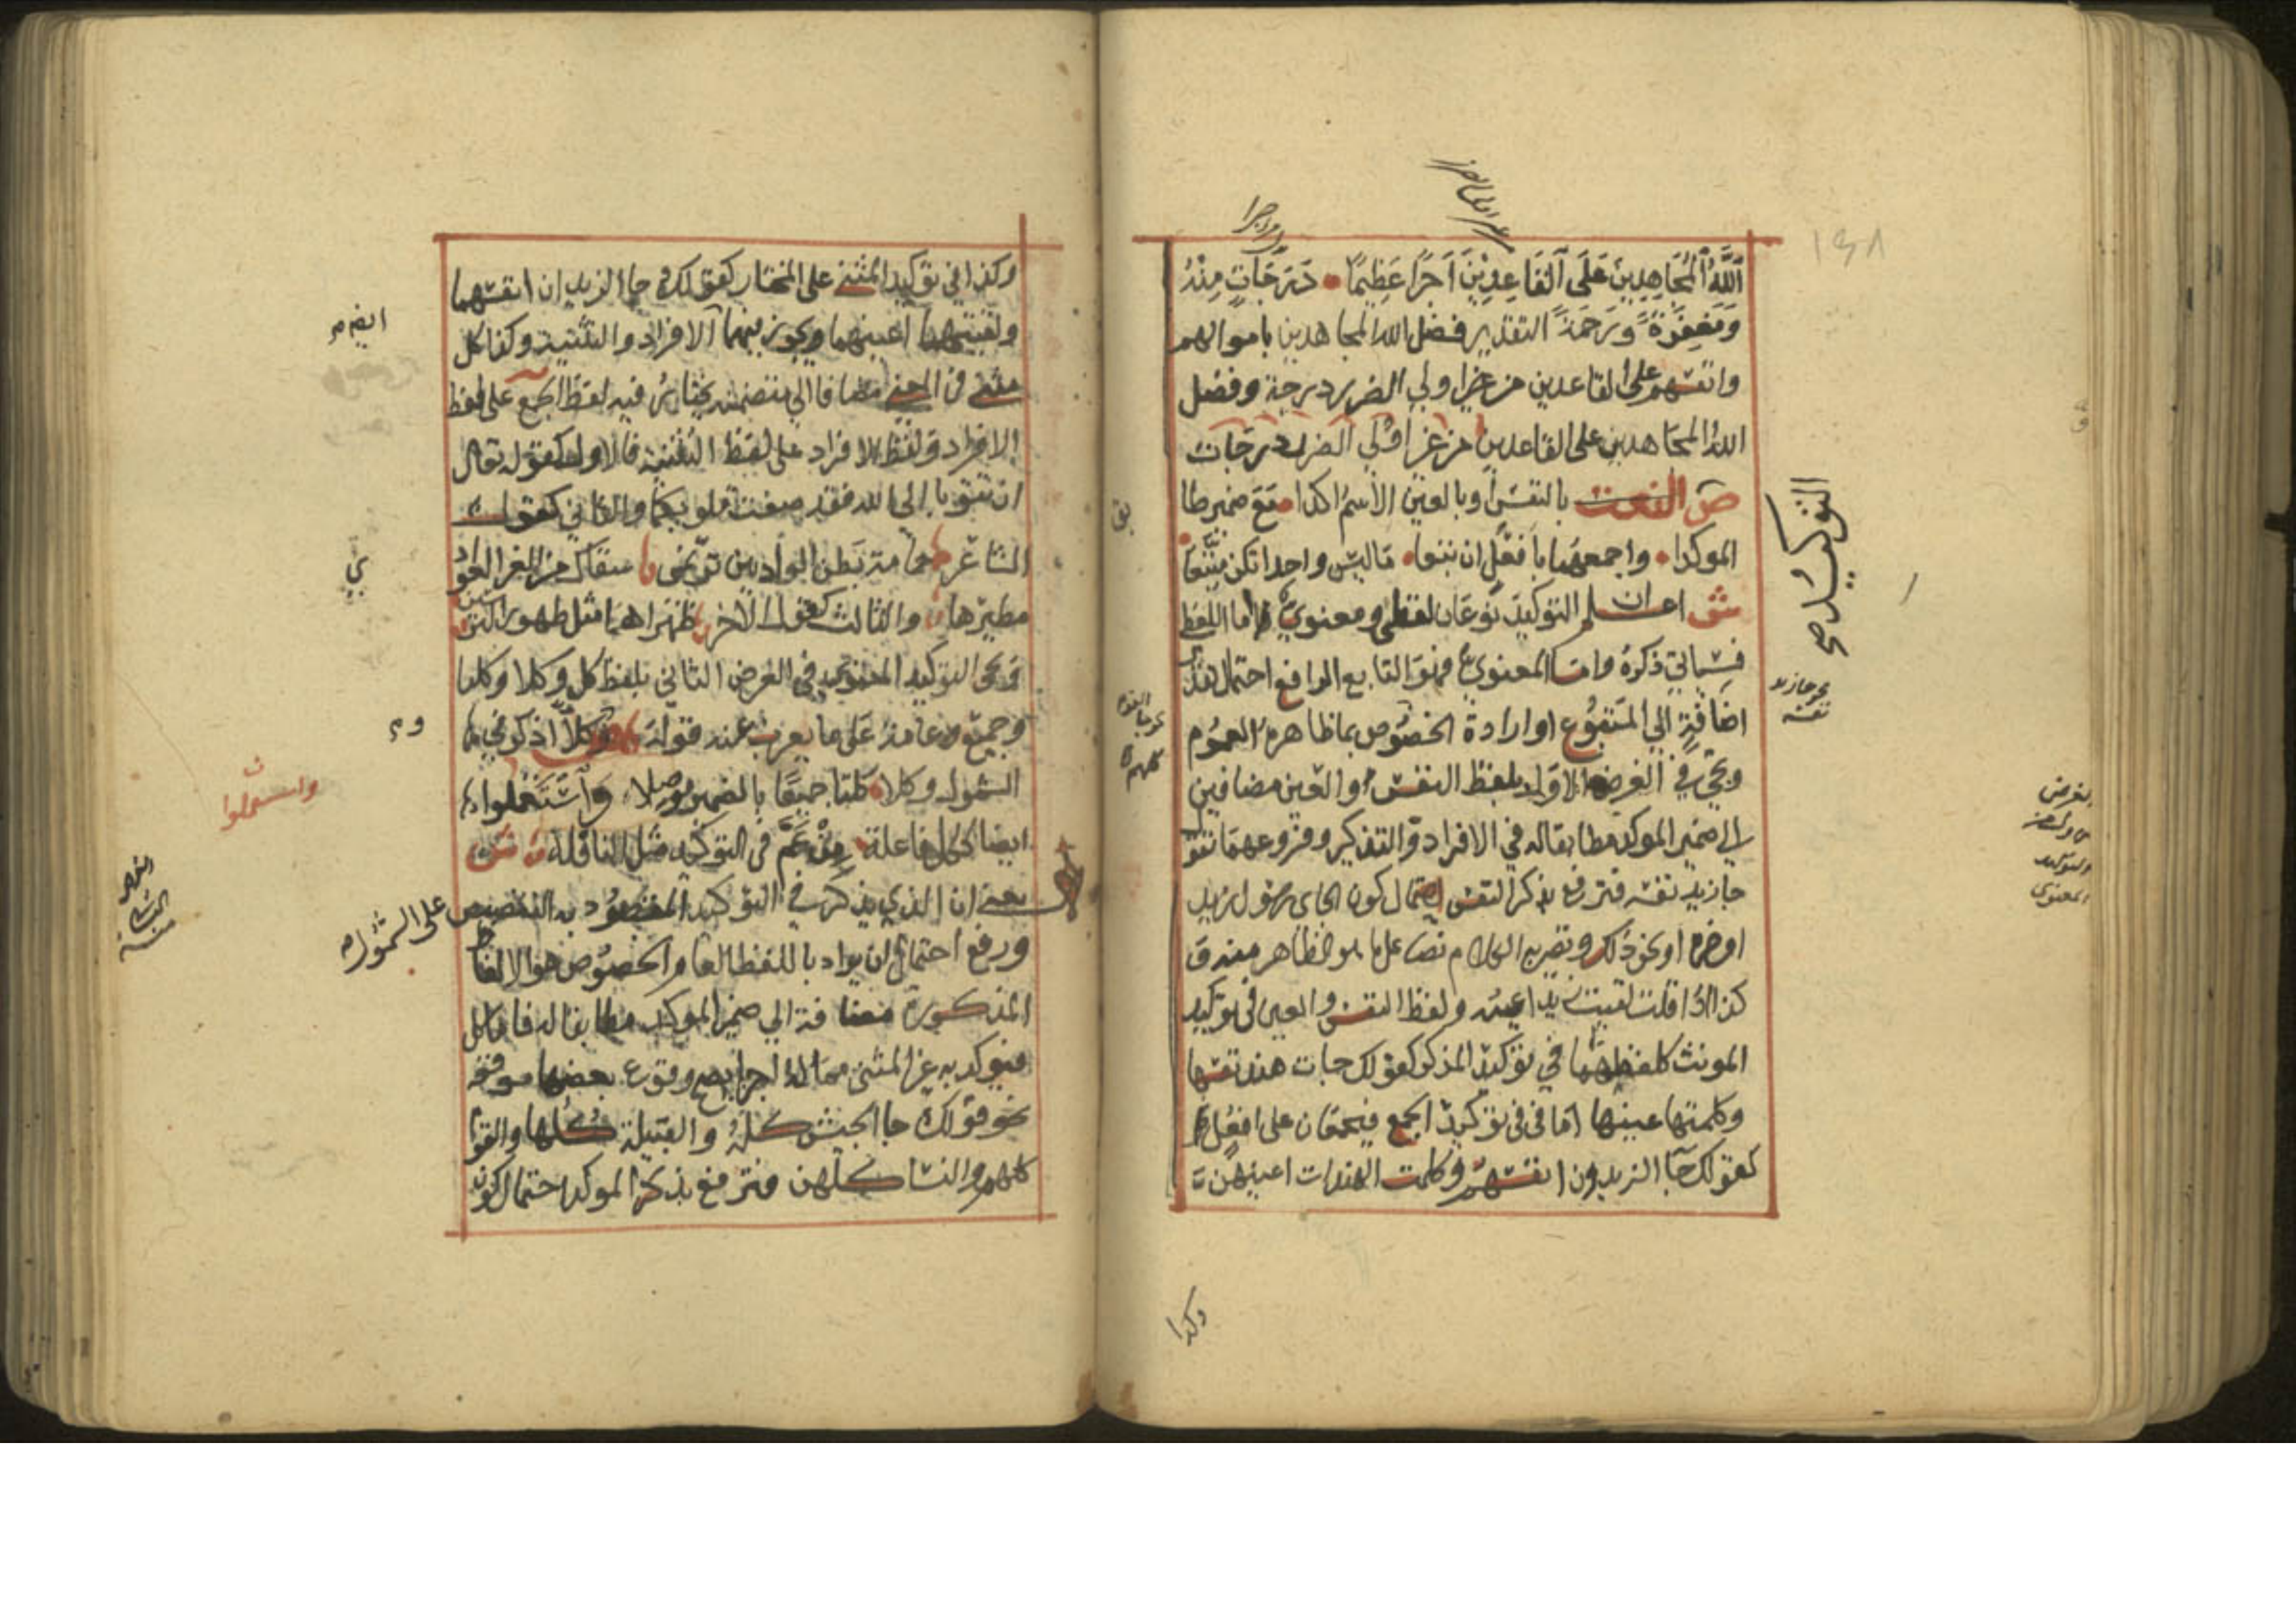 الله المجاهدين على القاعدين اجرا عظيما درجات منه
ومغفرة ورحمة التقدير فضل الله المجاهدين باموالهم
وانفسهم على القاعدين من غير اولي الضرر درجة وفضل
الله المجاهدين على القاعدين من غير اولي الضرر درجات
ص بالنفس او بالعين الاسم اكدا مع ضمير طابق
الموكدا واجمعهما بافعل ان تبعا ما ليس واحدا تكن متبعا
ش اعلم ان التوكيد نوعان لفظي ومعنوي اما اللفظي
فسياتي ذكره واما المعنوي فهو التابع الرافع احتمال
اضافة الى المتبوع او ارادة الخصوص بما ظاهره العموم
ويجي في الغرض الاول بلفظ النفس او العين مضافين
الى ضمير الموكد مطابقا له في الافراد والتذكير وفروعهما تقول
جا زيد نفسه فترفع بذكر النفس احتمال كون الجاي رسول زيد
او خبره او نحو ذلك ويصير به الكلام نصا على ما هو الظاهر منه و
كذا اذا قلت لقيت زيدا عينه ولفظ النفس والعين في توكيد
المونث كلفظهما في توكيد المذكر كقولك جات هند نفسها
وكلمتها عينها اما في توكيد الجمع فيجمعان على افعل
كقولك جا الزيدون انفسهم وكلمت الهندات اعينهن
التوكيد صح
نحو جا زيد نفسه
كلهم
وكذا
وكذا في توكيد المثنى على المختار كقولك جا الزيدان انفسهما
ولقيتهما اعينهما ويجوز فيهما الافراد والتثنية وكذا كل
مثنى في المعنى مضاف الى متضمنه يختار فيه لفظ الجمع على لفظ
الافراد ولفظ الافراد على لفظ التثنية فالاول كقوله تعالى
ان تتوبا الى الله فقد صغت قلوبكما والثاني كقول
الشاعر حمامة بطن الواديين ترنمي سقاك من الغر الغوادي
مطيرها والثالث كقول الاخر ظهراهما مثل ظهور الترسين
ويجي التوكيد المعنوي في الغرض الثاني بلفظ كل وكلا وكلتا
وجميع وعامة على ما يعرب عنه قوله ص وكلا اذكر في
الشمول وكلا كلتا جميعا بالضمير موصلا واستعملوا
ايضا ككل فاعلة من عم في التوكيد مثل النافلة ش
يعني ان الذي يذكر في التوكيد المقصود به التنصيص على الشمول
ورفع احتمال ان يراد باللفظ العام الخصوص هو الالفاظ
المذكورة مضافة الى ضمير الموكد مطابقا له فاما كل
فيوكد به غير المثنى مما له اجزا يصح وقوع بعضها موقعه
نحو قولك جا الجيش كله والقبيلة كلها والقوم
كلهم والنسا كلهن فترفع بذكر الموكد احتمال كون
واستعملوا